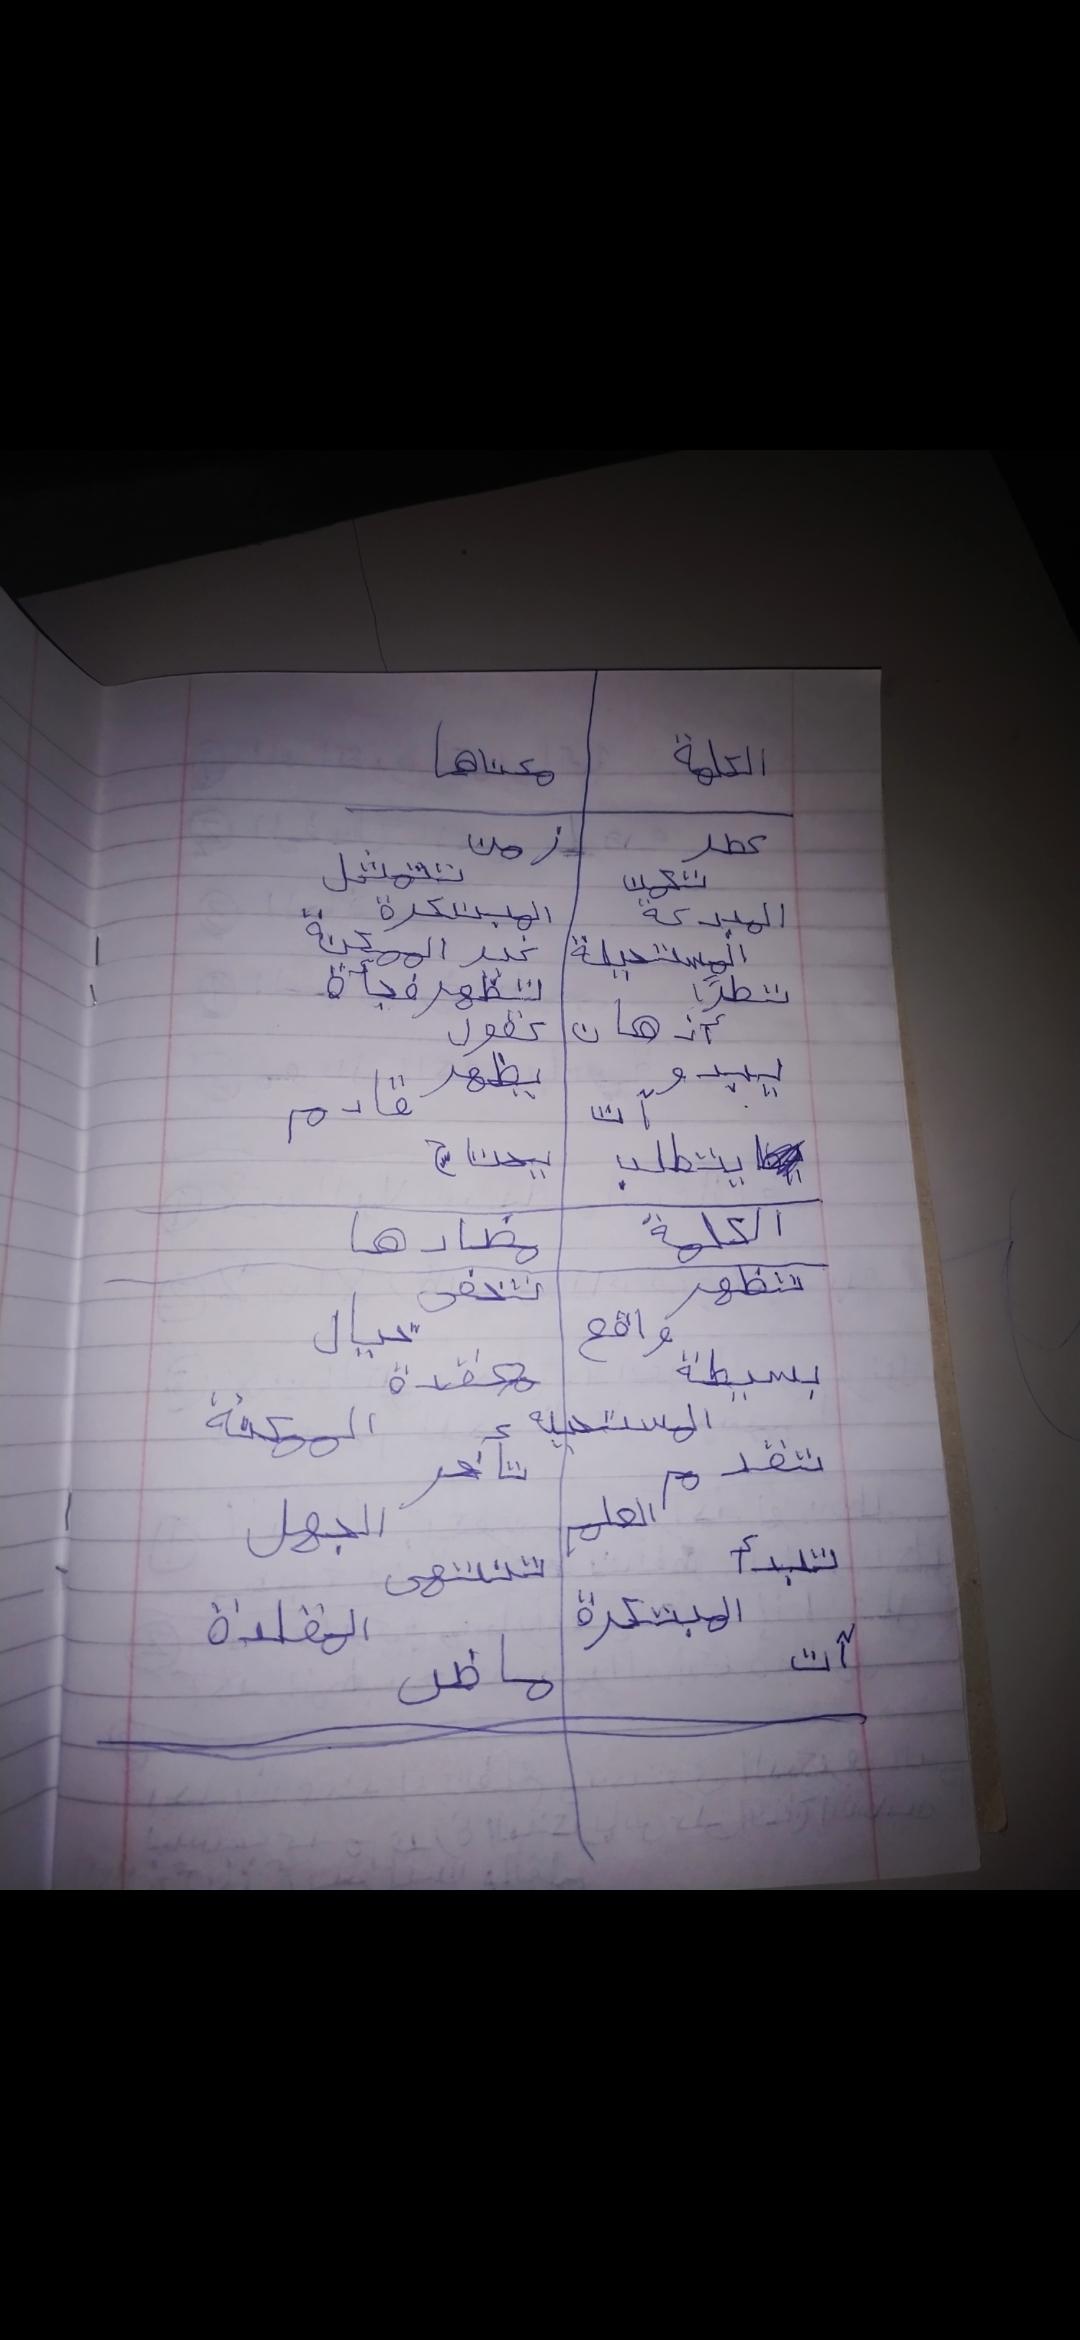 الكلمة معناها
عصر زمن
تكمن تتمثل
المبدعة المبتكرة
المستحيلة غير الممكنة
تطرأ تظهر فجأة
أذهان عقول
يبدو يظهر
آت قادم
يتطلب يحتاج
الكلمة مضادها
تظهر تختفى
واقع خيال
بسيطة معقدة
المستحيلة الممكنة
تقدم تأخر
العلم الجهل
تبدأ تنتهى
المبتكرة المقلدة
آت ماض